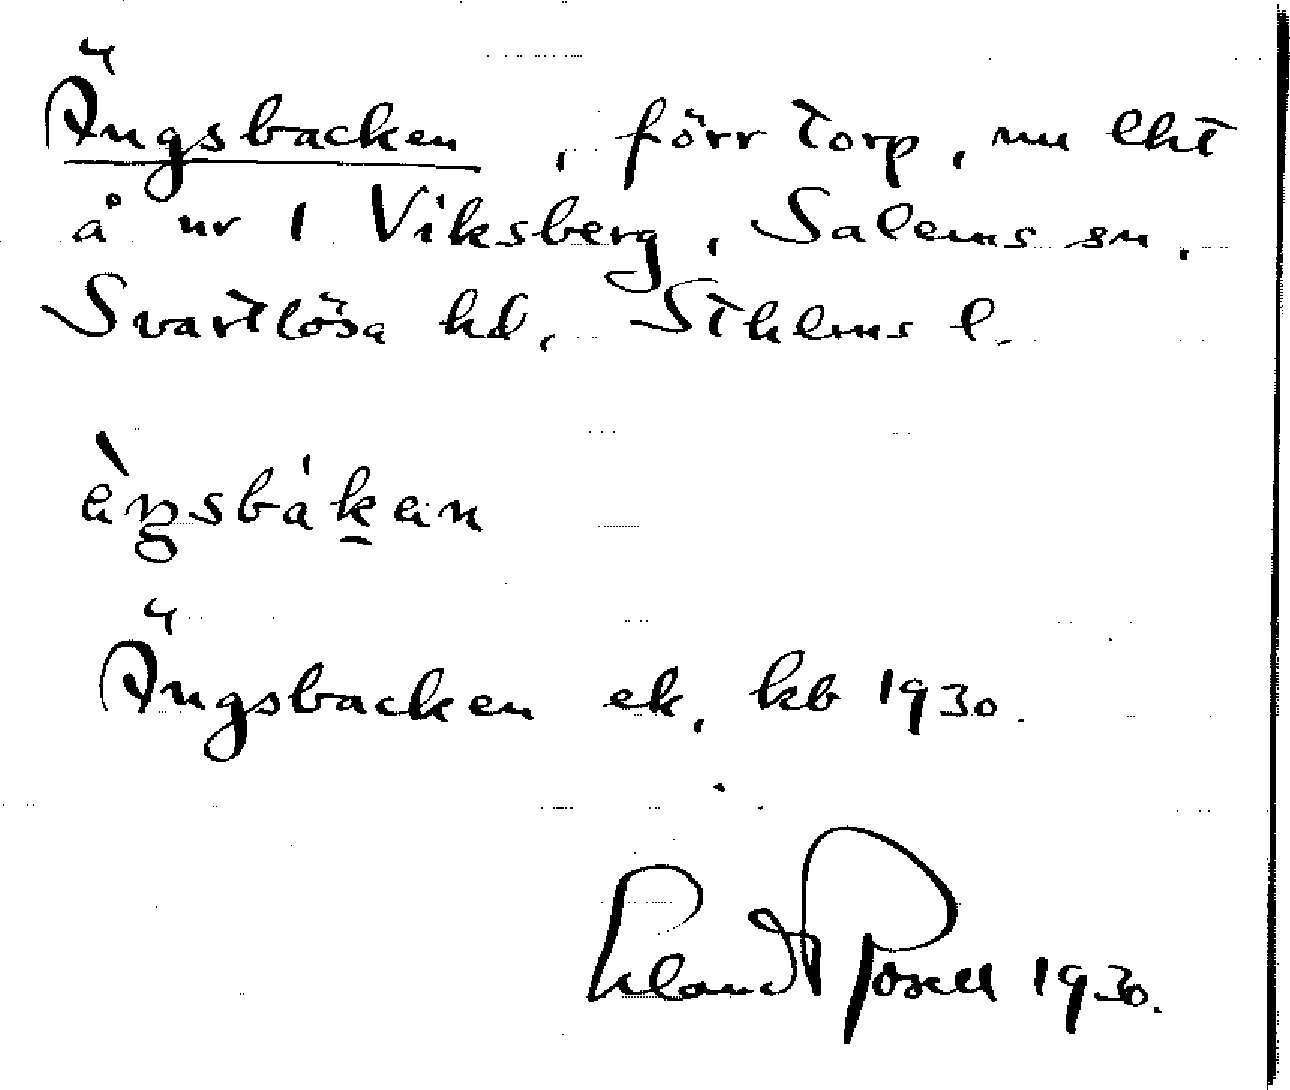 Ängsbacken, förr torp, nu lht
å nr 1 Viksberg, Salems sn,
Svartlösa hd, Sthlms l.
èŋsbákan
Ängsbacken ek. kb 1930.
Erland Rosell 1930.